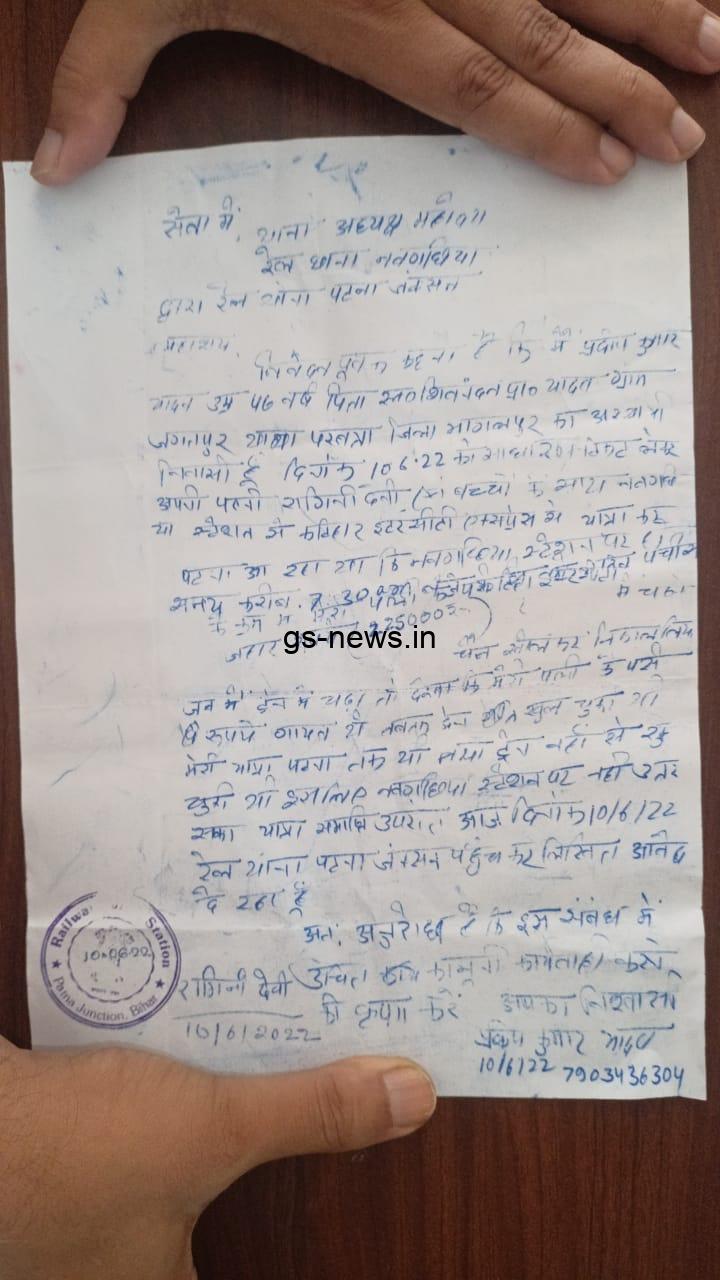 सेवा में,
थाना अध्यक्ष महोदय
रेल थाना नवगछिया
द्वारा रेल थाना पटना जंक्सन
महाशय,
निवेदन पूर्वक कहना है कि मैं प्रदीप कुमार
यादव उम्र 46 वर्ष पिता स्व० प्रा० यादव ग्राम
जगतपुर थाना परवत्ता जिला भागलपुर का अस्थायी
निवासी हूँ दिनांक 10.6.22 को साधारण टिकट लेकर
अपनी पत्नी रागिनी देवी एवं बच्चों के साथ नवगछि
या स्टेशन से कटिहार इंटरसीटी एक्सप्रेस से यात्रा कर
पटना आ रहा था कि नवगछिया स्टेशन पर
समय करीब 7.30
के क्रम में मेरी पत्नी में चढ़ने
gs-news.in
25000रु
चैन खोलकर निकाल लिया
जब मैं ट्रेन में चढ़ा तो देखा कि मेरी पत्नी के पर्स
से रूपये गायब थे तबतक ट्रेन खुल चुकी थी
मेरी यात्रा पटना तक था तथा ट्रेन वहाँ से खु
चुकी थी इसलिए नवगछिया स्टेशन पर नहीं उतर
सका यात्रा समाप्ति उपरांत आज दिनांक 10/6/22
रेल थाना पटना जंक्सन पहुंच कर लिखित आवेद
दे रहा हूँ
अतः अनुरोध है कि इस संबंध में
उचित कानूनी कार्यवाही करने
की कृपा करें
आपका विश्वासी
प्रदीप कुमार यादव
10/6/22 7903436304
रागिनी देवी
10/6/2022
Railway Station
10-06-22
Patna Junction, Bihar